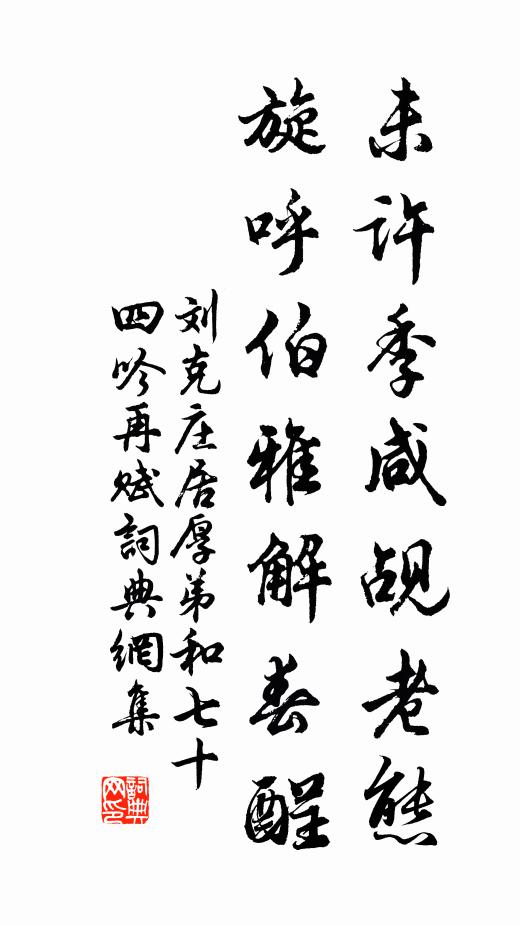 未许季咸觇老態
旋呼伯雅解春酲
刘克庄居厚弟和七十
四吟再赋詞典網集
詞典
网印